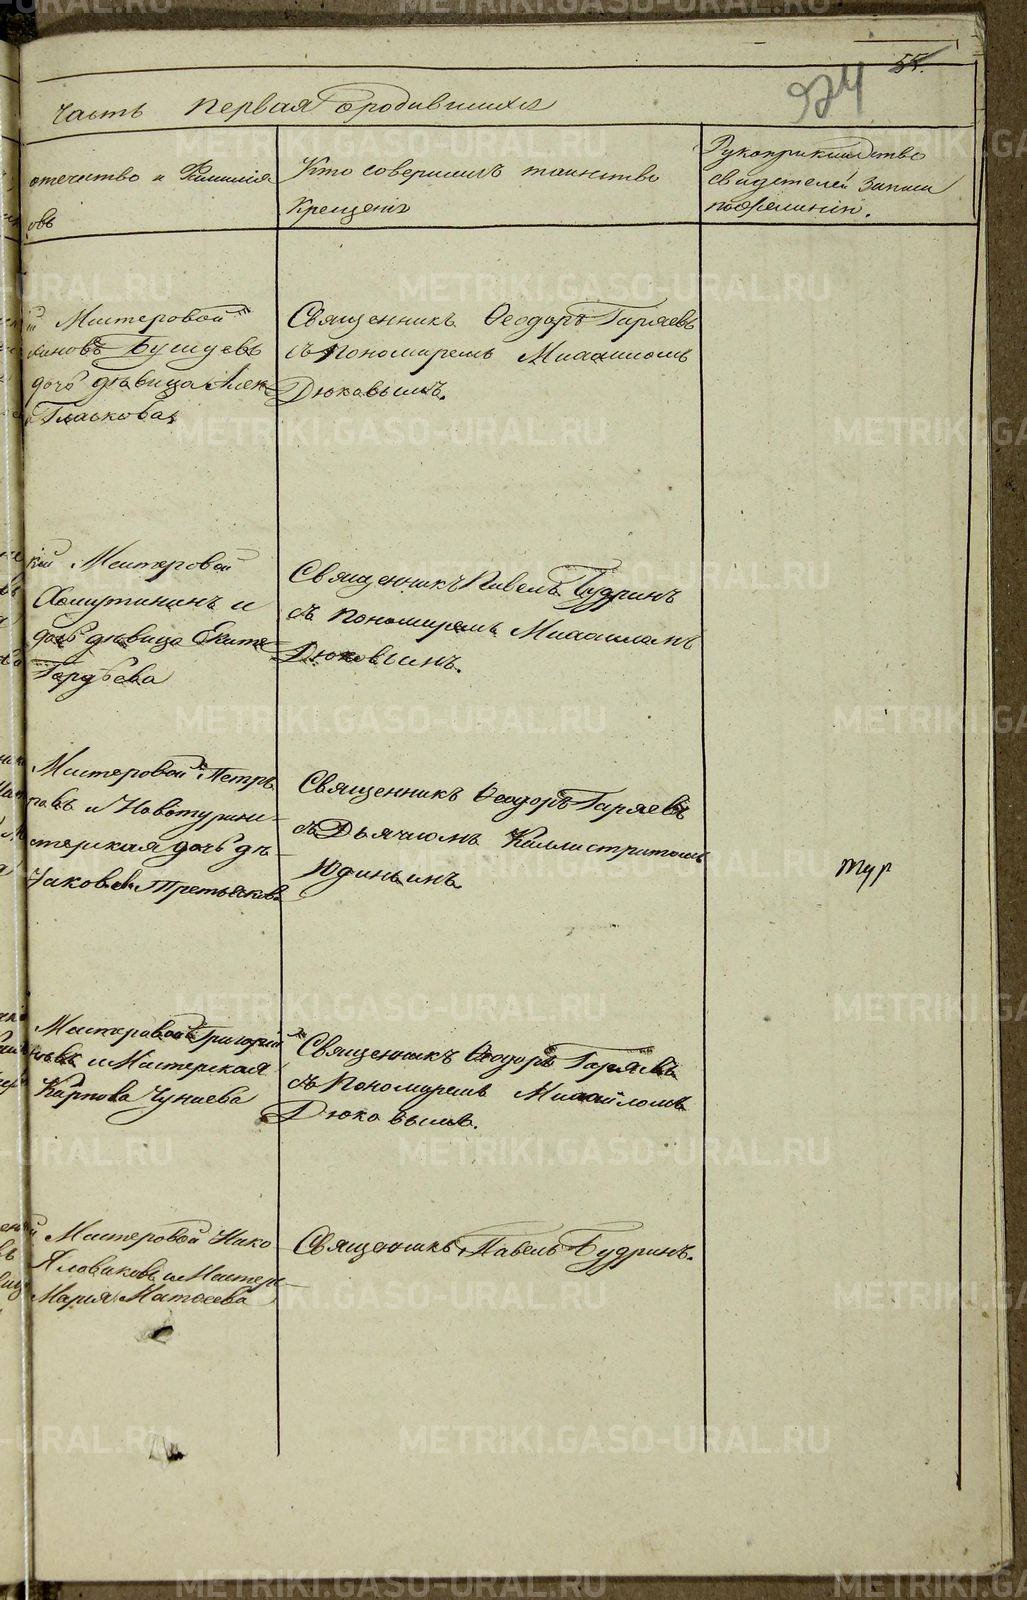 55.
924
Часть Первая о родившихся
отечество и Фамилія
овъ
Кто совершилъ таинство
Крещенія
Рукоприкладство
свидетелей записи
по желанію.
й Мастеровой
иновъ Бушуевъ
дочь девица Алек
Гласкова
Священникъ Ѳеодоръ Гаряевъ
съ Пономаремъ Михаиломъ
Дюковымъ.
кій Мастеровой
Хомутининъ и
дочь девица Екате
Гордѣева
Священникъ Павелъ Будринъ
съ Пономаремъ Михаиломъ
Дюковымъ.
Мастеровой Петръ
повъ и Новотурин-
стерская дочь дѣ
Яковл. Третьякова
Священникъ Ѳеодоръ Гаряевъ
съ Дьячкомъ Каллистратомъ
Юдинымъ.
тур
Мастеровой Григорій
новъ и Мастерская
Карпова Чунаева
Священникъ Ѳеодоръ Гаряевъ
съ Пономаремъ Михаиломъ
Дюковымъ.
Мастеровой Нико
Яловиковъ и Мастер
Марія Матвеева
Священникъ Павелъ Будринъ.
METRIKI.GASO-URAL.RU